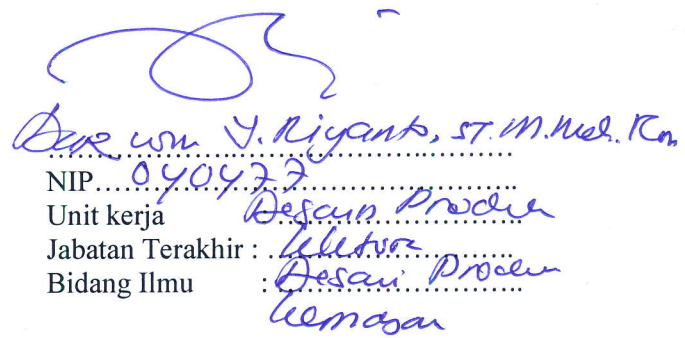 Darwin Y. Riyanto, ST. M.Med. Kom
NIP 040477
Unit kerja Desain Produk
Jabatan Terakhir : Lektor
Bidang Ilmu : Desain Produk
Kemasan